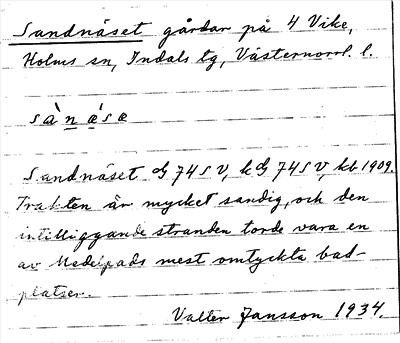 Sandnäset gårdar på 4 Vike,
Holms sn, Indals tg, Västernorrl. l.
sànása
Sandnäset GJ 74 SV, k GJ 74 SV, kb 1909.
Trakten är mycket sandig, och den
intilliggande stranden torde vara en
av Medelpads mest omtyckta bad-
platser.
Valter Jansson 1934.